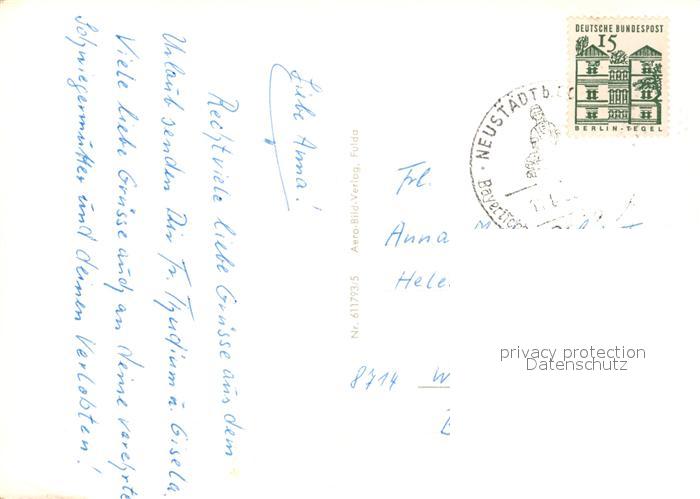 Liebe Anna!
Recht viele liebe Grüsse aus dem
Urlaub senden Dir Fr. u. Gisela.
Viele liebe Grüsse auch an deine verehrte
Schwiegermutter und deinen Verlobten!
Nr. 611793/5 Aero-Bild-Verlag, Fulda
DEUTSCHE BUNDESPOST
15
BERLIN-TEGEL
NEUSTADT b.
Frl.
Anna
Hele
8714 W
privacy protection
Datenschutz